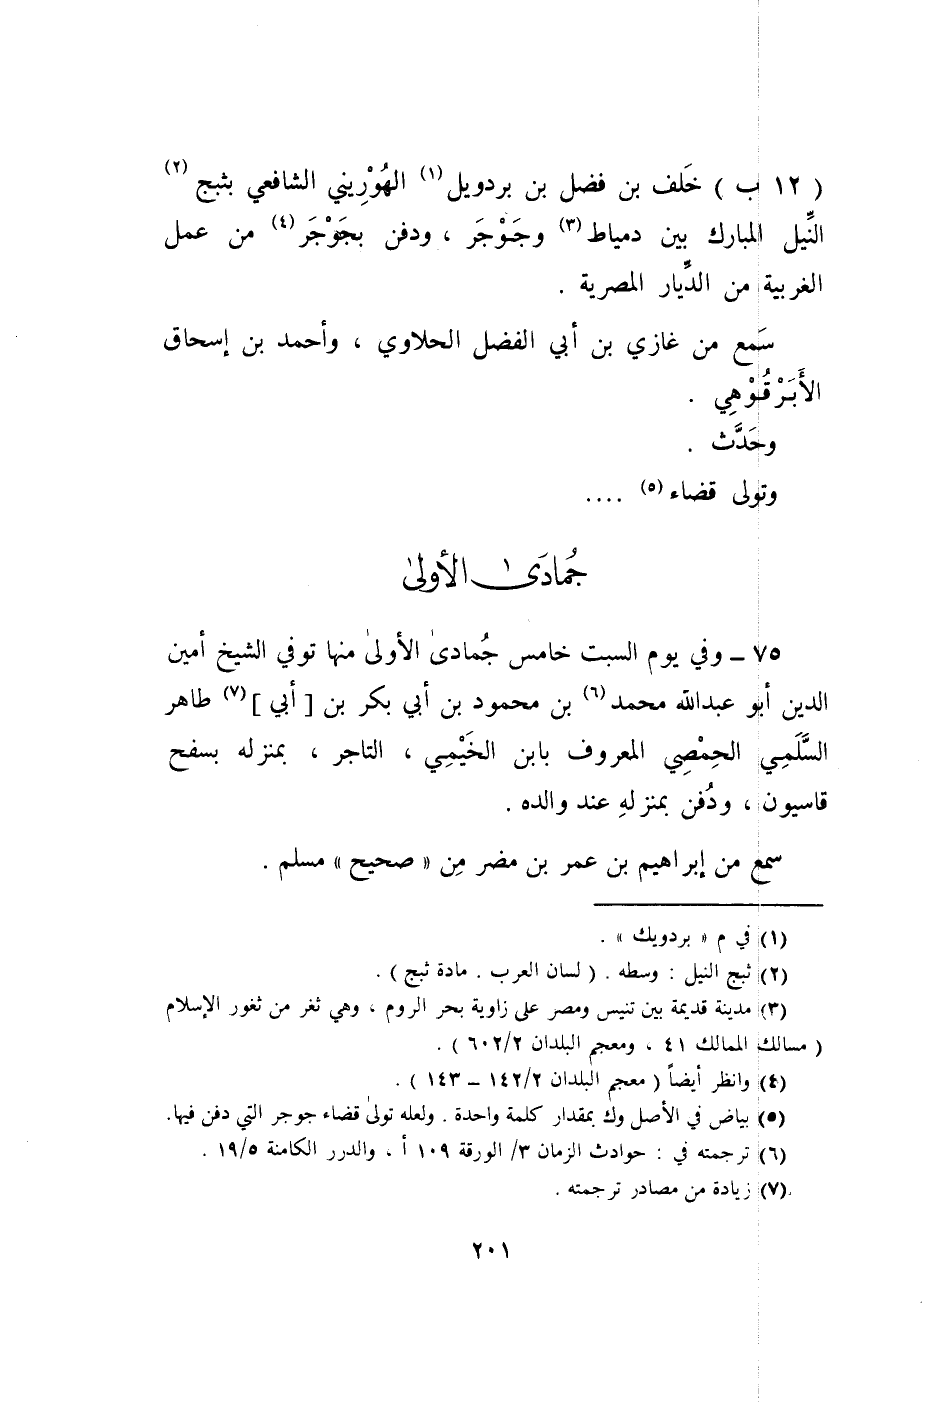 ( ١٢ ب ) خَلف بن فضل بن بردويل(١) الهُوْرِيني الشافعي بثبج(٢)
النِّيل المبارك بين دمياط(٣) وجَوْجَر ، ودفن بجَوْجَر(٤) من عمل
الغربية من الدِّيار المصرية .
سَمع من غازي بن أبي الفضل الحلاوي ، وأحمد بن إسحاق
الأَبَرْقُوْهِي .
وحَدَّث .
وتولى قضاء(٥) ....
جُمادَىٰ الأولىٰ
٧٥ ـ وفي يوم السبت خامس جُمادىٰ الأولىٰ منها توفي الشيخ أمين
الدين أبو عبدالله محمد(٦) بن محمود بن أبي بكر بن [ أبي ](٧) طاهر
السَّلَمِي الحِمْصِي المعروف بابن الخَيْمِي ، التاجر ، بمنزله بسفح
قاسيون ، ودُفن بمنزلهِ عند والده .
سمع من إبراهيم بن عمر بن مضر مِن « صحيح » مسلم .
(١) في م « بردويك » .
(٢) ثبج النيل : وسطه . ( لسان العرب . مادة ثبج ) .
(٣) مدينة قديمة بين تنيس ومصر على زاوية بحر الروم ، وهي ثغر من ثغور الإسلام
( مسالك الممالك ٤١ ، ومعجم البلدان ٦٠٢/٢ ) .
(٤) وانظر أيضاً ( معجم البلدان ١٤٢/٢ ـ ١٤٣ ) .
(٥) بياض في الأصل وك بمقدار كلمة واحدة . ولعله تولىٰ قضاء جوجر التي دفن فيها.
(٦) ترجمته في : حوادث الزمان ٣/ الورقة ١٠٩ أ ، والدرر الكامنة ١٩/٥ .
(٧) زيادة من مصادر ترجمته .
٢٠١